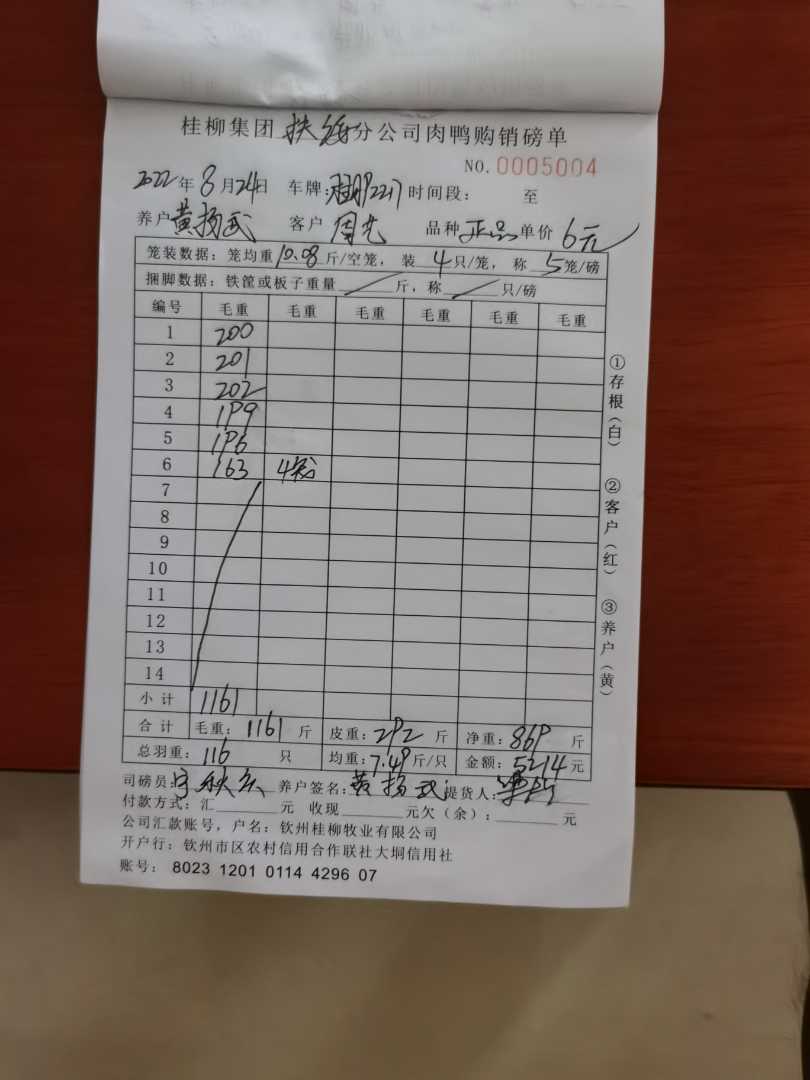 桂柳集团扶绥分公司肉鸭购销磅单
NO.0005004
2022年8月24日 车牌: 时间段: 至
养户黄扬武 客户 周光 品种 正品 单价 6元
笼装数据: 笼均重10.08斤/空笼, 装 4只/笼, 称 5笼/磅
捆脚数据: 铁筐或板子重量 / 斤, 称 / 只/磅
编号 毛重 毛重 毛重 毛重 毛重 毛重
1 200
2 201
3 202
4 199
5 196
6 163 4笼
7
8
9
10
11
12
13
14
小计 1161
合计 毛重: 1161 斤 皮重: 292 斤 净重: 869 斤
总羽重: 116 只 均重: 7.49斤/只 金额: 5214元
司磅员: 养户签名: 黄扬武 提货人:
付款方式: 汇 元 收现 元欠(余): 元
公司汇款账号, 户名: 钦州桂柳牧业有限公司
开户行: 钦州市区农村信用合作联社大垌信用社
账号: 8023 1201 0114 4296 07
①存根(白) ②客户(红) ③养户(黄)